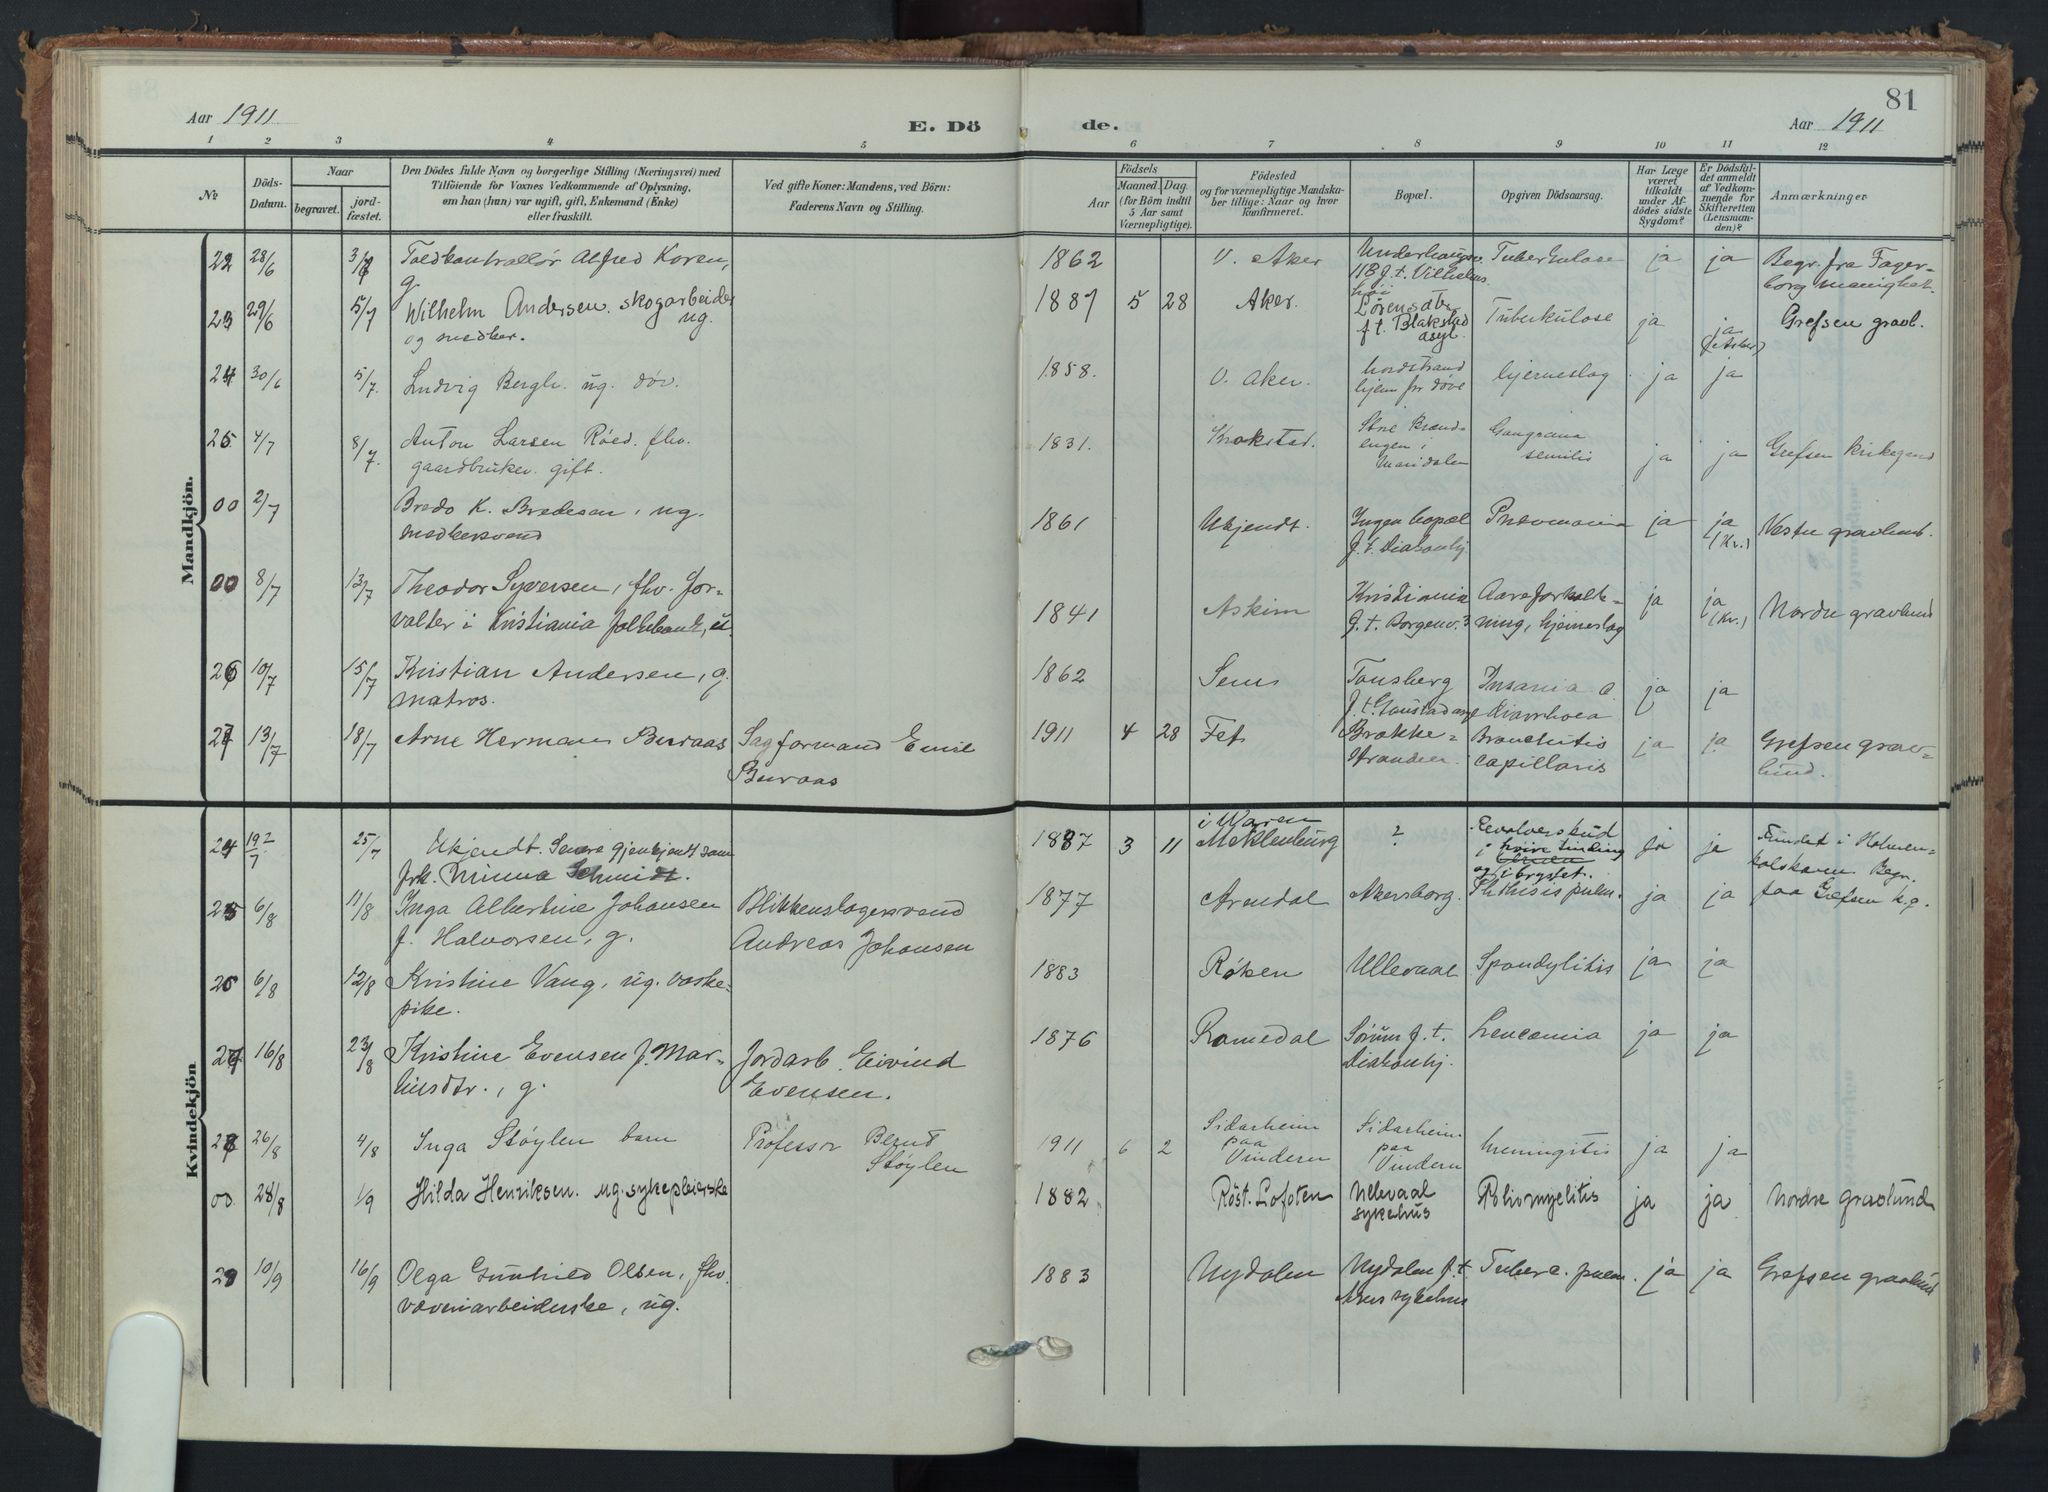 81
Aar 1911
E. Döde.
Aar 1911
1 2 3 4 5 6 7 8 9 10 11 12
No
Döds-
Datum.
Naar
begravet.
jord-
fæstet.
Den Dödes fulde Navn og borgerlige Stilling (Næringsvei) med
Tilföiende for Voxnes Vedkommende af Oplysning,
om han (hun) var ugift, gift, Enkemand (Enke)
eller fraskilt.
Ved gifte Koner: Mandens, ved Börn:
Faderens Navn og Stilling.
Födsels
Aar
Maaned.
Dag.
(for Börn indtil
5 Aar samt
Værnepligtige).
Födested
og for værnepligtige Mandska-
ber tillige: Naar og hvor
konfirmeret.
Bopæl.
Opgiven Dödsaarsag.
Har Læge
været
tilkaldt
under Af-
dödes sidste
Sygdom?
Er Dödsfal-
det anmeldt
af Vedkom-
mende for
Skifteretten
(Lensman-
den)?
Anmærkninger
Mandkjön.
22 28/6 3/7 Toldkontrollør Alfred Koren, 1862 V. Aker Underhaugsv. Tuberkulose ja ja Begr. fra Fager-
g. 11B f.t. Vilhelms borg menighet.
høi
23 29/6 5/7 Wilhelm Andersen. skogarbeider 1887 5 28 Aker. Lørensdtr Tuberkulose ja ja Grefsen gravl.
og snedker. ug. f.t. Blakstad (Asker)
asyl.
24 30/6 5/7. Ludvig Bergh. ug. døv. 1858. V. Aker. Nordstrand hjerneslag ja ja
hjem for døve
25 4/7 8/7. Anton Larsen Røed. fhv. 1831. Kraakstad. Brænd- Gangræna ja ja Grefsen kirkegaard
gaardbruker. gift. engen i senilis
Maridalen
00 2/7 Bredo K. Bredesen, ug. 1861 Ukjendt. Ingen bopæl Pneumonia ja ja Vestre gravlund.
snedkersvend f.t. Diakonhj (Kr.)
00 8/7 13/7 Theodor Syversen, fhv. for- 1841 Askim Kristiania Aareforkalk- ja ja Nordre gravlund
valter i Kristiania folkebank, f.t. Borgenv. 3 ning, hjerneslag (Kr.)
26 10/7 15/7 Kristian Andersen, g. 1862 Sem Tønsberg Insania c ja ja
matros. f.t. Gaustad asyl diarrhoea
27 13/7 18/7 Arne Herman Buraas Sagformand Emil 1911 4 28 Fet Brække- Bronchitis ja ja Grefsen grav-
Buraas stranden. capillaris lund.
Kvindekjön
24 19?/7 25/7 Ukjendt. Senere gjenkjendt som 1887 3 11 i Waren ? Revolverskud ja ja Fundet i Holmen-
frk. Minna Schmidt. Meklenburg i høire tinding kolskoven. Begr.
og i brystet. paa Grefsen k.g.
25 6/8 11/8 Inga Albertine Johansen Blikkenslagersvend 1877 Arendal Akersborg. Phthisis pulm. ja ja
f. Halvorsen, g. Andreas Johansen
26 6/8 12/8 Kristine Vang, ug. vaske- 1883 Røken Ullevaal Spondylitis ja ja
pike.
27 16/8 23/8 Kristine Evensen f. Mar- Jordarb. Eivind 1876 Romedal Sørum f.t. Leucæmia ja ja
tinsdtr., g. Evensen. Diakonhj.
28 26/8 4/8 Inga Støylen barn Professor Bernt 1911 6 2 Sidarheim Sidarheim meningitis ja ja
Støylen paa paa
Vindern Vindern
00. 28/8 1/9 Hilda Henriksen. ug. sykepleierske 1882 Röst. Lofoten Ullevaal Poliomyelitis ja ja Nordre gravlund
sykehus
29 10/9 16/9 Olga Gunhild Olsen, fhv. 1883 Nydalen Nydalen f.t. Tuberc. pulm. ja ja Grefsen gravlund
væveriarbeiderske, ug. Akers sykehus